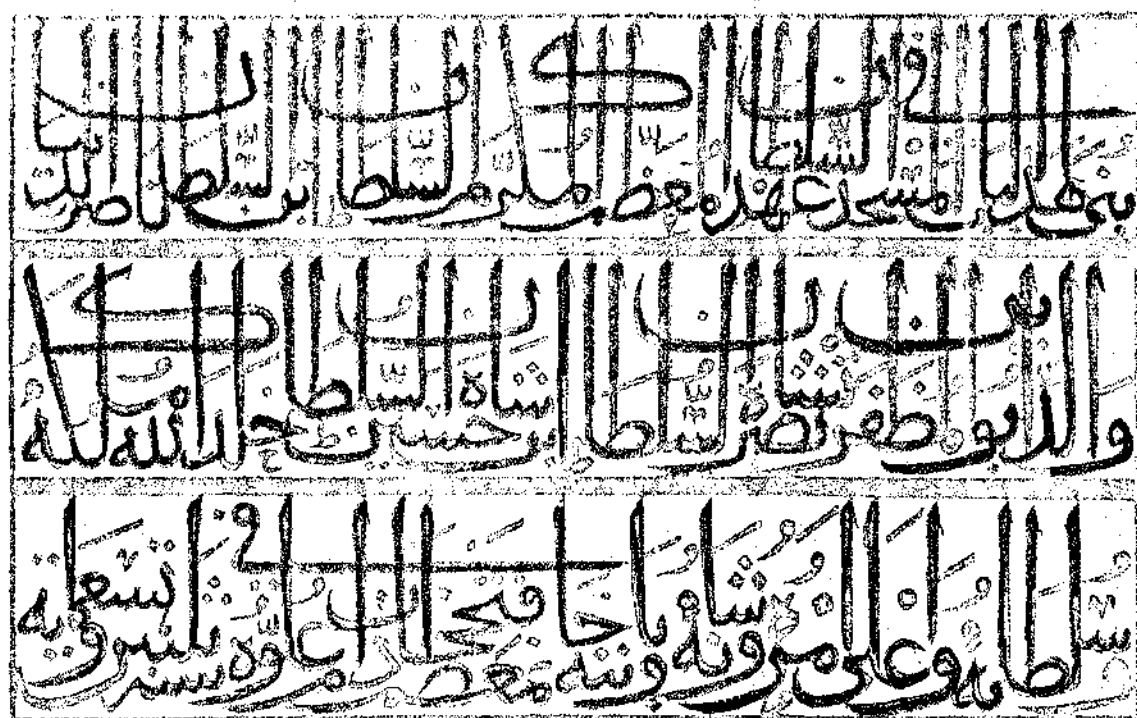 بنى هذا المسجد في عهد السلطان المعظم المكرم السلطان بن السلطان ناصر الدنيا
والدين ابو المظفر نصرت شاه السلطان بن حسين شاه السلطان خلد الله ملكه
وسلطانه واعلى امره وشانه معظم علوه في سنة ثلثين وتسعماية